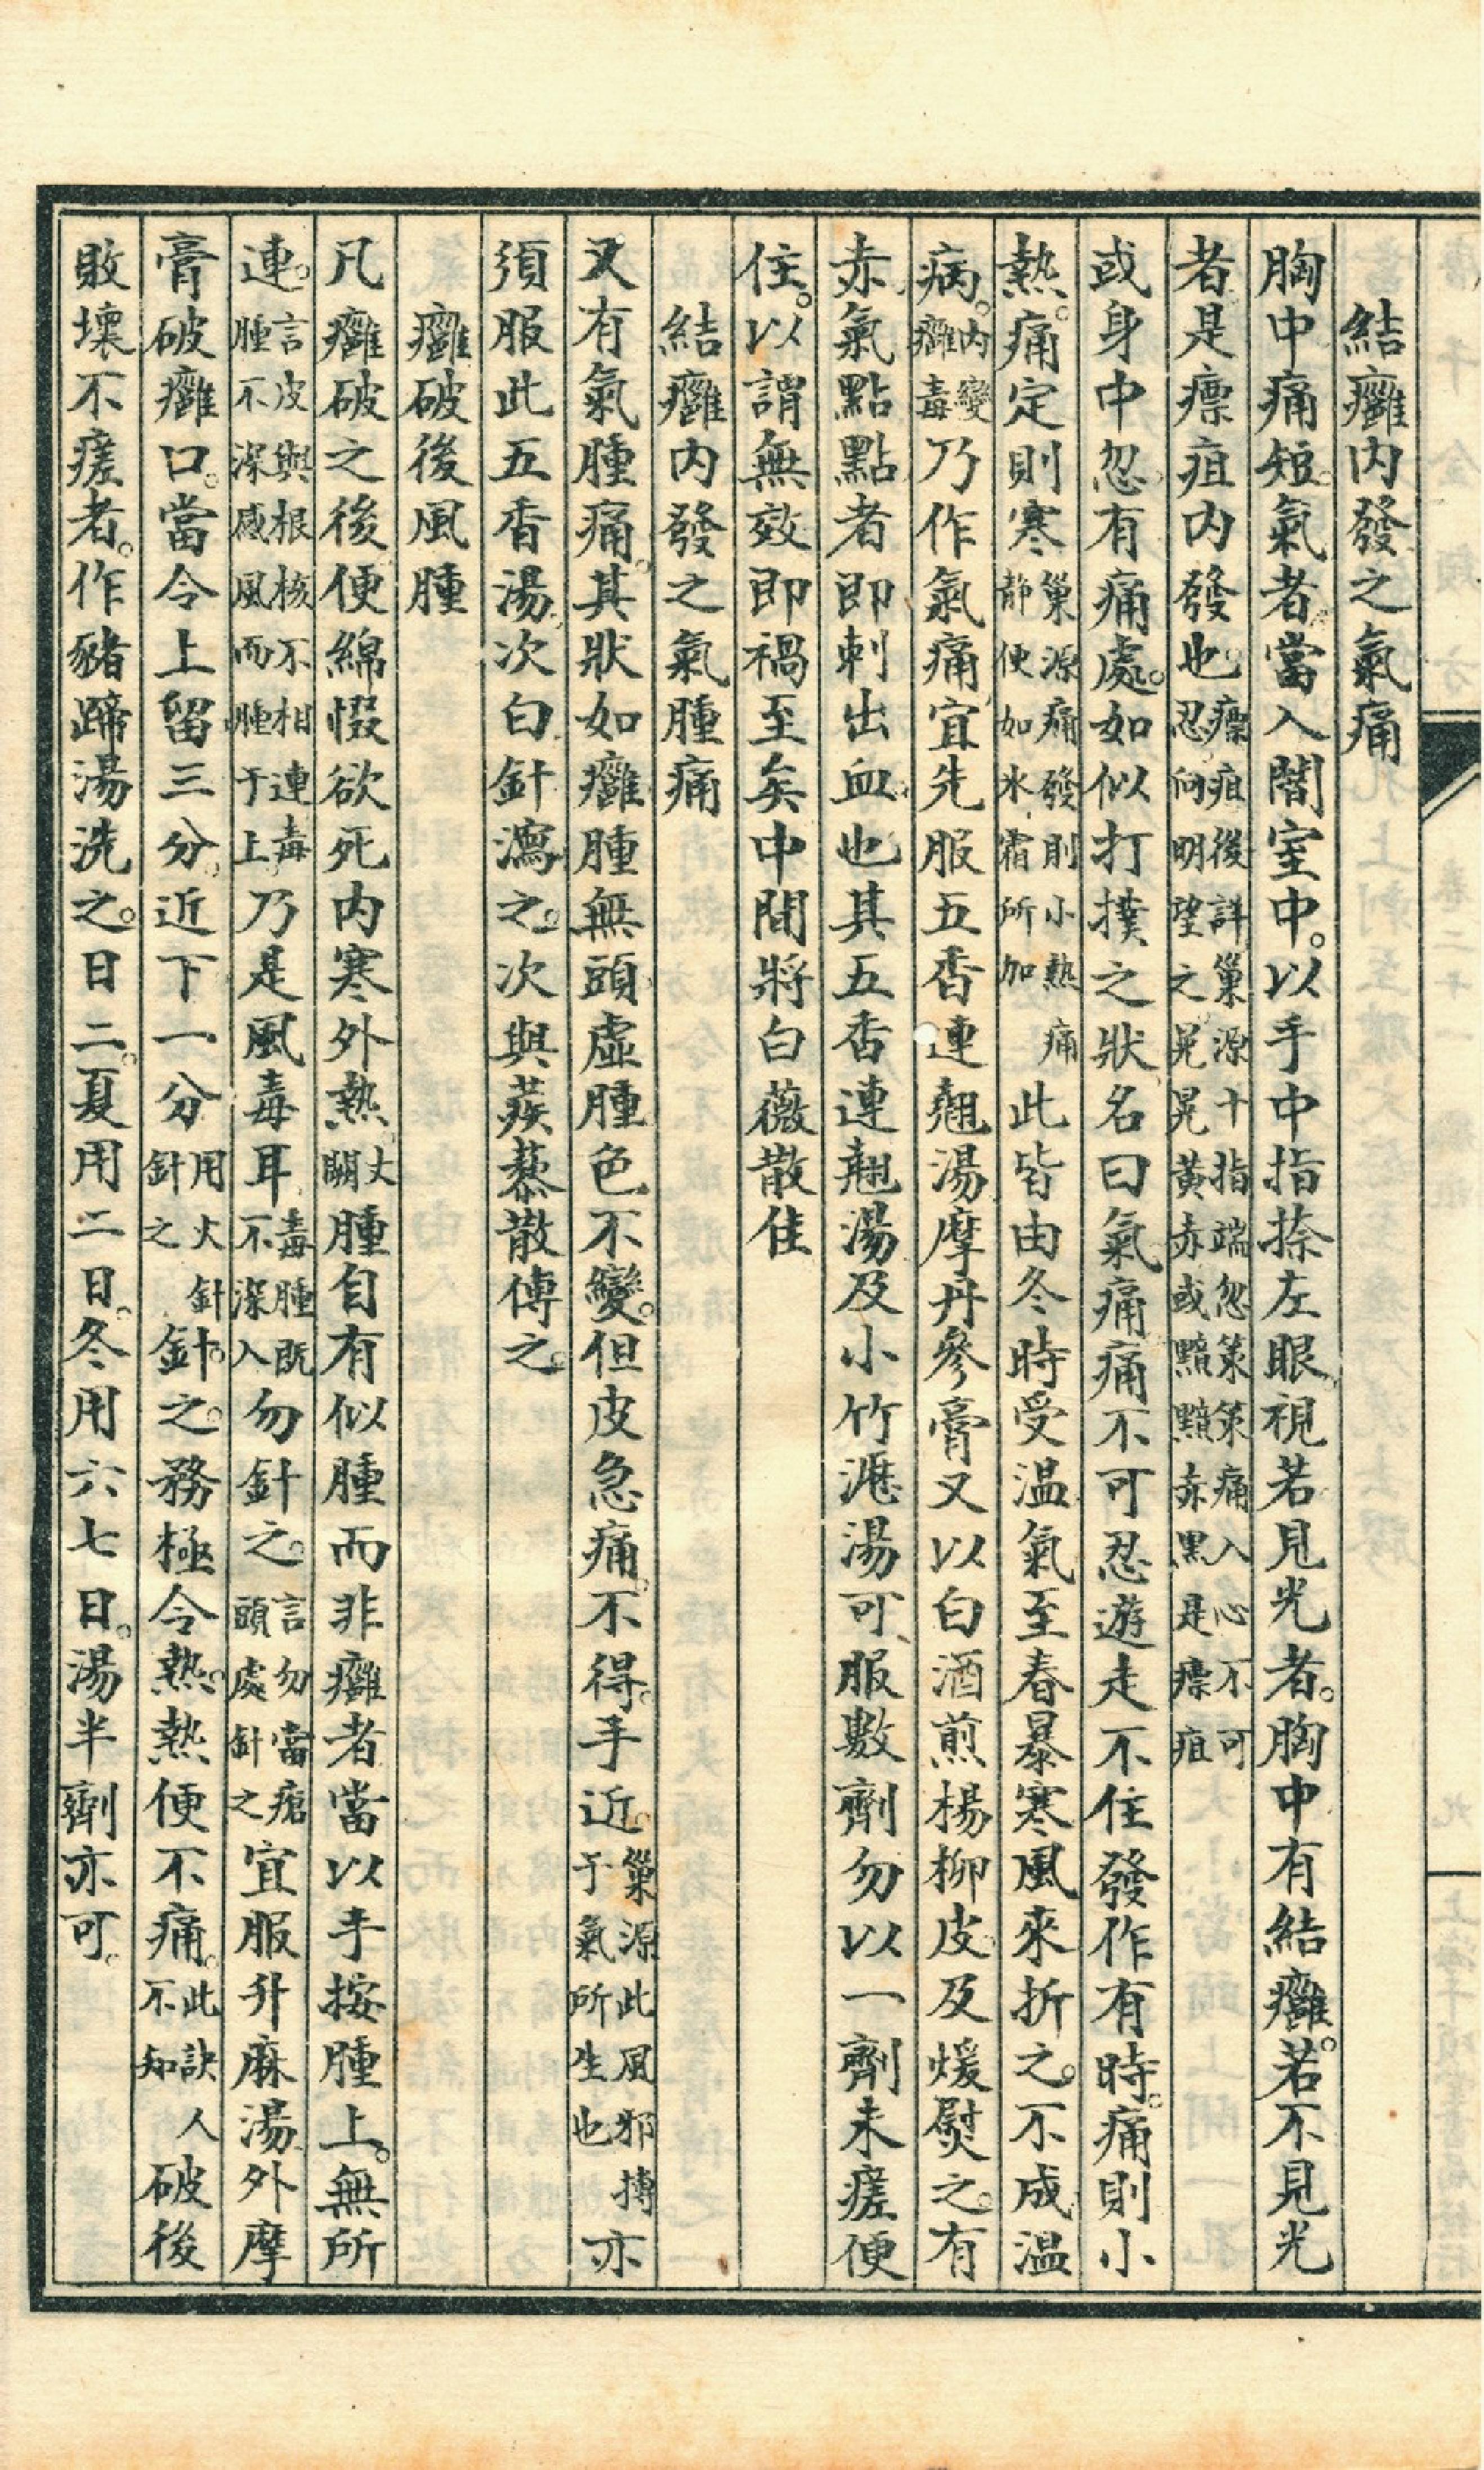 結癰内發之氣痛
胸中痛短。氣者。當入闇室中。以手中指捺左眼。視若見光者。胸中有結癰。若不見光
者是瘭疽内發也。瘭疽後詳巢源十指端忽策策痛入心不可忍向明望之晃晃黃赤或黯黯赤黑是瘭疽
或身中忽有痛處。如似打撲之狀名曰氣痛痛不可忍遊走不住發作有時。痛則小
熱。痛定則寒巢源痛發則小熱痛靜便如冰霜所加此皆由冬時受温氣至春暴寒風來折之。不成温
病。内變癰毒乃作氣痛宜先服五香連翹湯摩丹參膏又以白酒煎楊柳皮及煖熨之。有
赤氣點點者即刺出血也其五香連翹湯及小竹瀝湯可服數劑勿以一劑未瘥便
住。以謂無效即禍至矣中間將白薇散佳
結癰内發之氣腫痛
又有氣腫痛。其狀如癰腫無頭虛腫色不變。但皮急痛。不得。手近。巢源此風邪搏于氣所生也亦
須服此五香湯。次白針瀉之。次與蒺藜散傅之。
癰破後風腫
凡癰破之後便綿惙欲死内寒外熱。文闕腫自有似腫而非癰者當以手按腫上。無所
連。言皮與根核不相連毒腫不深感風而腫于上乃是風毒耳毒腫既不深入勿針之。言勿當瘡頭處針之宜服升麻湯外摩
膏破癰口。當令上留三分。近下一分用火針針之針。之。務極令熱。熱便不痛。此訣人不知破後
敗壞不瘥者。作豬蹄湯洗之。日二。夏用二日。冬用六七日。湯半劑亦可。